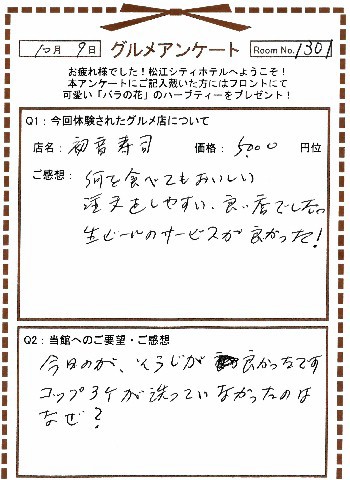 10月 9日 グルメアンケート Room No. 1301
お疲れ様でした！松江シティホテルへようこそ！
本アンケートにご記入戴いた方にはフロントにて
可愛い「バラの花」のハーブティーをプレゼント！
Q1：今回体験されたグルメ店について
店名： 初音寿司 価格： 5000 円位
ご感想： 何を食べてもおいしい
注文をしやすい、良い店でした。
生ビールのサービスが良かった！
Q2：当館へのご要望・ご感想
今日のが、そうじが 良かったです
コップ3ケが洗っていなかったのは
なぜ？